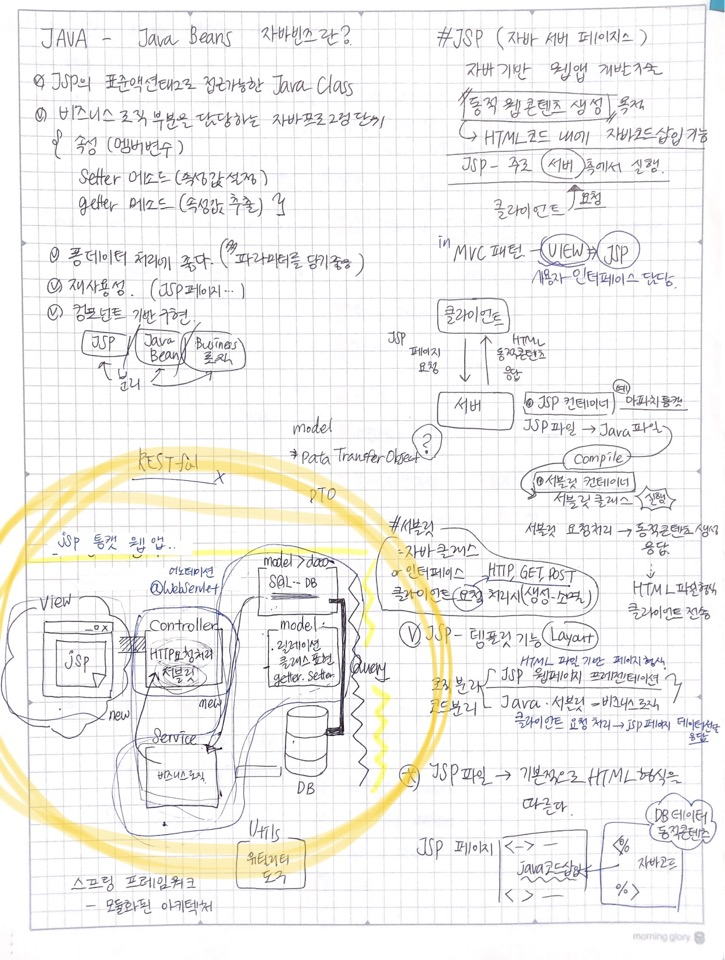 JAVA - Java Beans 자바빈즈란?
JSP의 표준액션태그로 접근가능한 Java Class
비즈니스 로직 부분을 담당하는 자바프로그램 단위
{ 속성 (멤버변수)
Setter 메소드 (속성값 설정)
getter 메소드 (속성값 추출) }
폼데이터 처리에 좋다. (파라미터를 담기좋음)
재사용성. (JSP페이지...)
컴포넌트 기반 구현.
JSP / Java Bean / Business 로직
분리
model
* Data Transfer Object ?
RESTful
DTO
jsp 톰캣 웹 앱..
어노테이션
@WebServlet
model > dao
SQL - DB
View
jsp
new
Controller
HTTP요청처리
서블릿
new
model
릴레이션
클래스표현
getter. Setter
Query
Service
비즈니스로직
DB
Utils
유틸리티
도구
스프링 프레임워크
- 모듈화된 아키텍처
#JSP (자바 서버 페이지스)
자바기반 웹앱 개발기술
"동적 웹콘텐츠 생성" 목적
↳ HTML코드 내에 자바코드삽입 가능
JSP - 주로 서버 측에서 실행.
클라이언트 요청
in MVC 패턴 - VIEW ⇒ JSP
사용자 인터페이스 담당.
클라이언트
JSP
페이지
요청
HTML
동적콘텐츠
응답
서버
JSP 컨테이너 (예) 아파치톰캣
JSP파일 → Java파일
Compile
서블릿 컨테이너
서블릿클래스 실행
#서블릿
=자바클래스
or 인터페이스 HTTP, GET, POST
클라이언트 요청 처리시 (생성-소멸)
서블릿 요청처리 → 동적콘텐츠 생성
응답
↓
HTML파일형식
클라이언트 전송
JSP - 템플릿 기능 (Layout)
HTML 파일 기반 페이지형식
로직분리 JSP 웹페이지 프레젠테이션
코드분리 Java · 서블릿 = 비즈니스로직
클라이언트 요청 처리 → JSP 페이지 데이터전달
응답
JSP파일 → 기본적으로 HTML 형식을
따른다.
JSP 페이지
<-> —
java코드삽입
< > —
DB데이터
동적콘텐츠
<%
자바코드
%>
morning glory